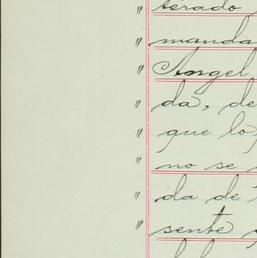 terado
" manda
" Angel
" da, de
" que lo,
" no se
" da de
" sente